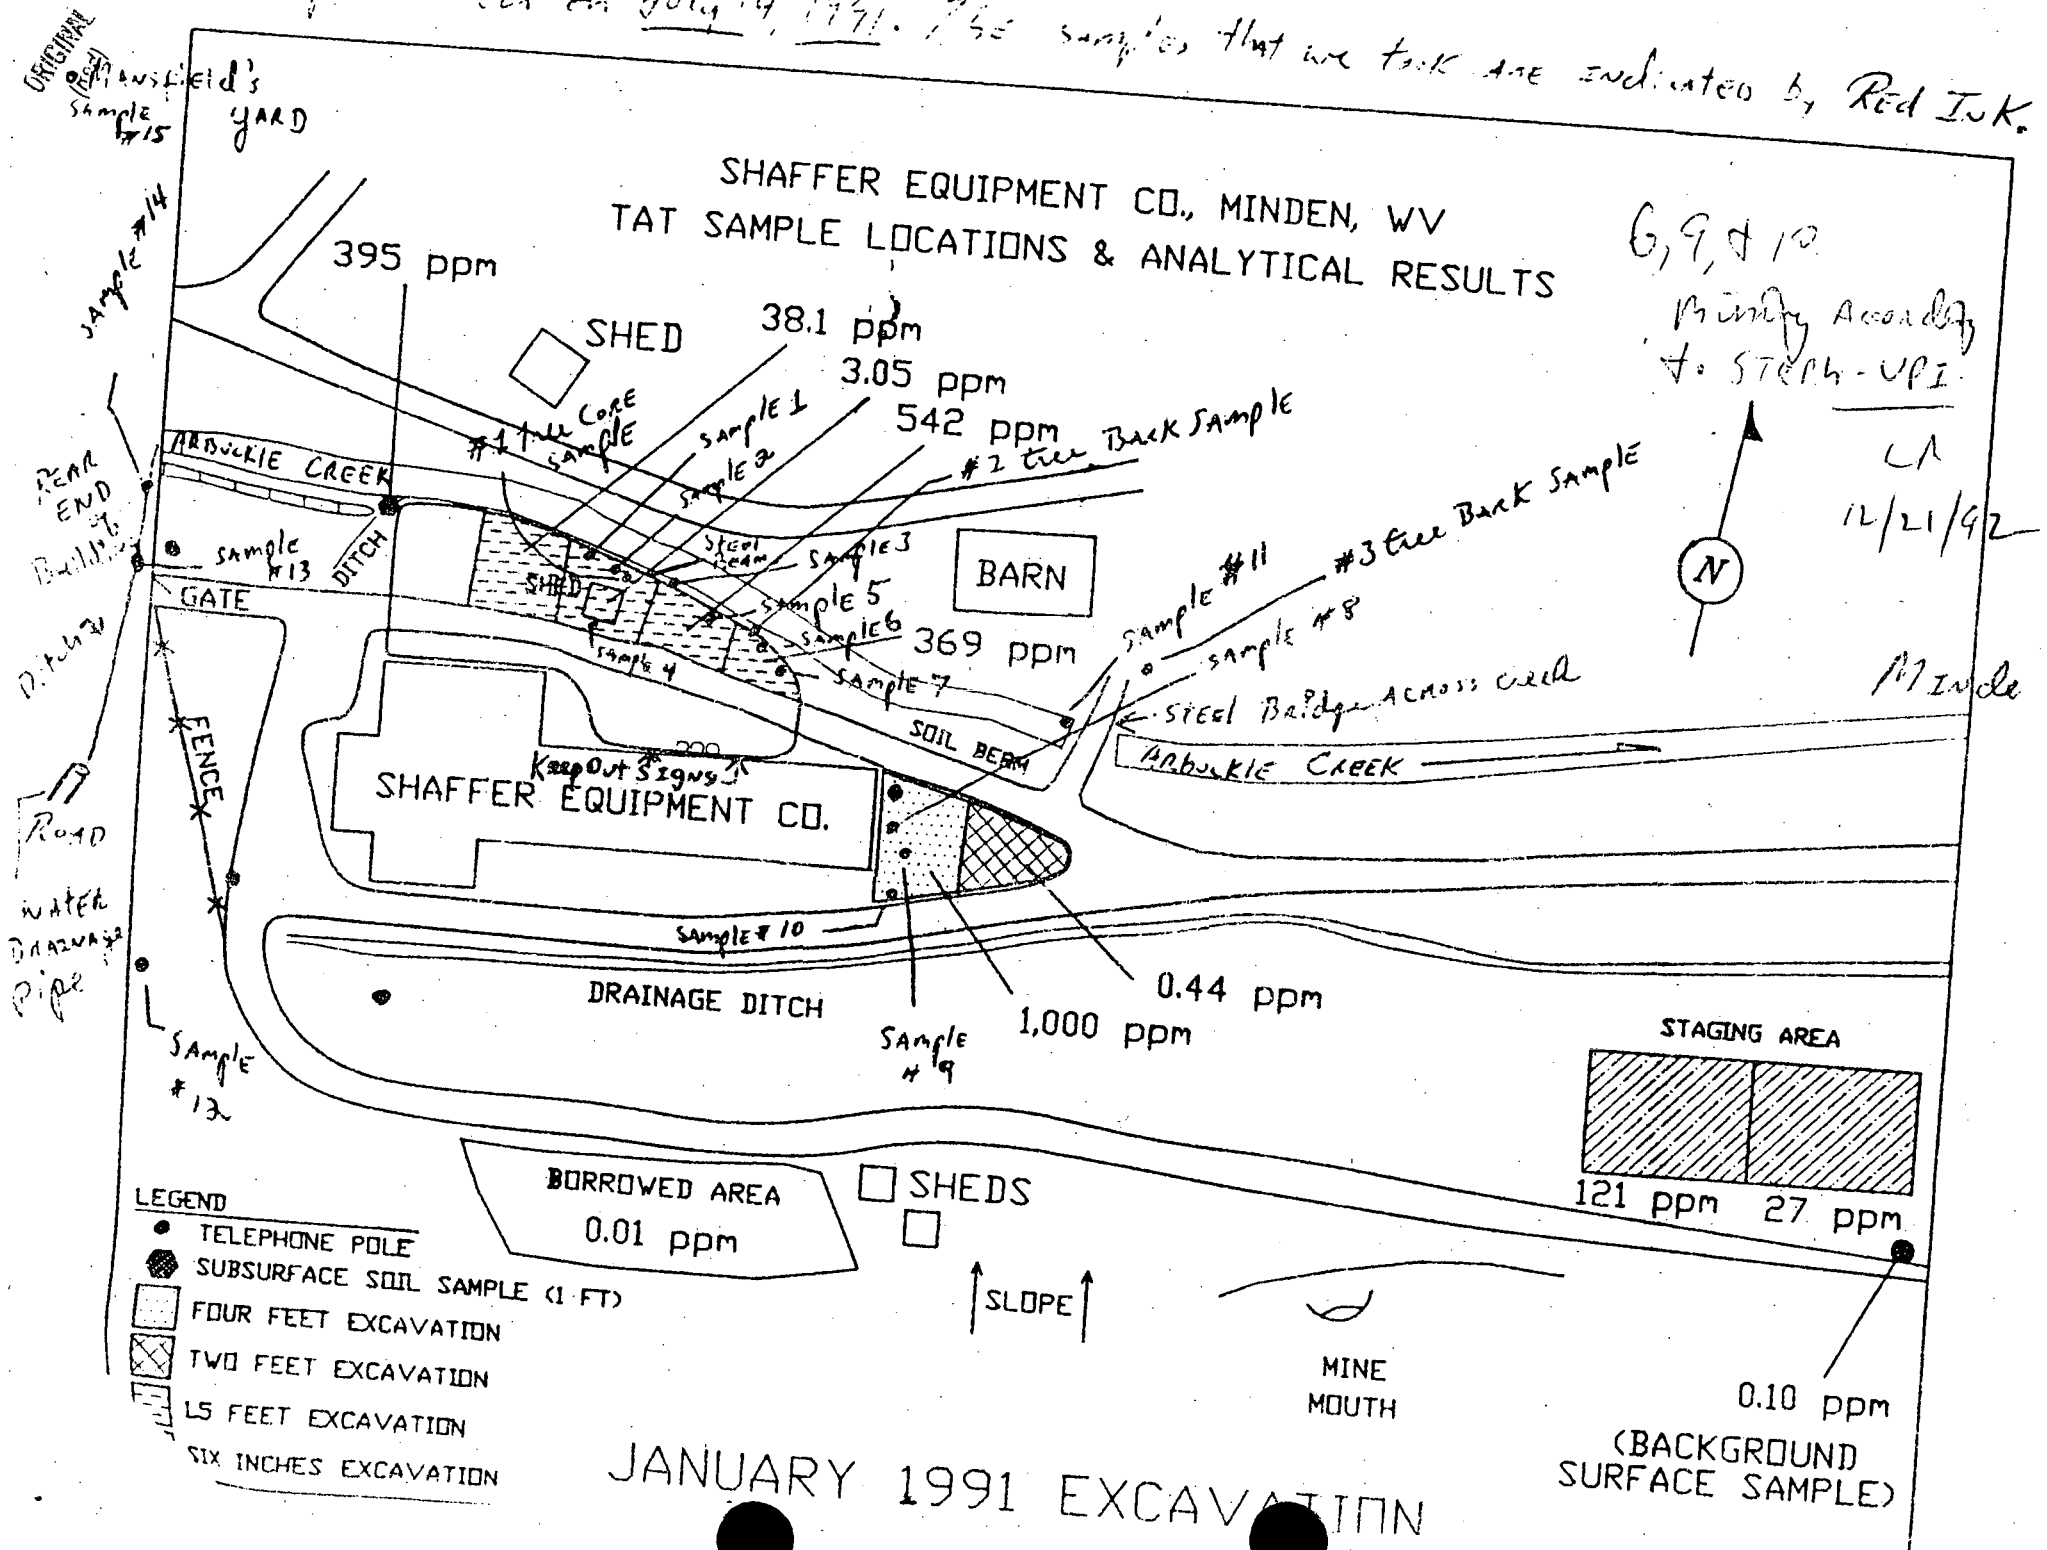 ORIGINAL
(Red)
July 19, 1991. The samples that we took are indicated by Red Ink.
Mansfield's
Sample
#15
YARD
Sample #14
SHAFFER EQUIPMENT CO., MINDEN, WV
TAT SAMPLE LOCATIONS & ANALYTICAL RESULTS
6, 9, & 10
Missing According
to Steph-UPI
12/21/92
395 ppm
SHED
38.1 ppm
3.05 ppm
542 ppm
#1 tree CORE
SAMPLE
Sample 1
Sample 2
#2 tree Bark Sample
#3 tree Bark Sample
ARBUCKLE CREEK
REAR
END
Building
Sample
#13
DITCH
SHED
STEEL
BEAM
Sample 3
BARN
Sample #11
N
GATE
Sample 5
Sample 6
369 ppm
Sample 4
Sample 7
Sample #8
Steel Bridge Across Creek
Minde
Ditch
FENCE
SOIL BERM
ARBUCKLE CREEK
Keep Out Signs
SHAFFER EQUIPMENT CO.
ROAD
WATER
DRAINAGE
Pipe
Sample #10
DRAINAGE DITCH
0.44 ppm
1,000 ppm
Sample
#9
Sample
#12
STAGING AREA
121 ppm
27 ppm
BORROWED AREA
0.01 ppm
SHEDS
SLOPE
MINE
MOUTH
0.10 ppm
(BACKGROUND
SURFACE SAMPLE)
LEGEND
TELEPHONE POLE
SUBSURFACE SOIL SAMPLE (1 FT)
FOUR FEET EXCAVATION
TWO FEET EXCAVATION
1.5 FEET EXCAVATION
SIX INCHES EXCAVATION
JANUARY 1991 EXCAVATION